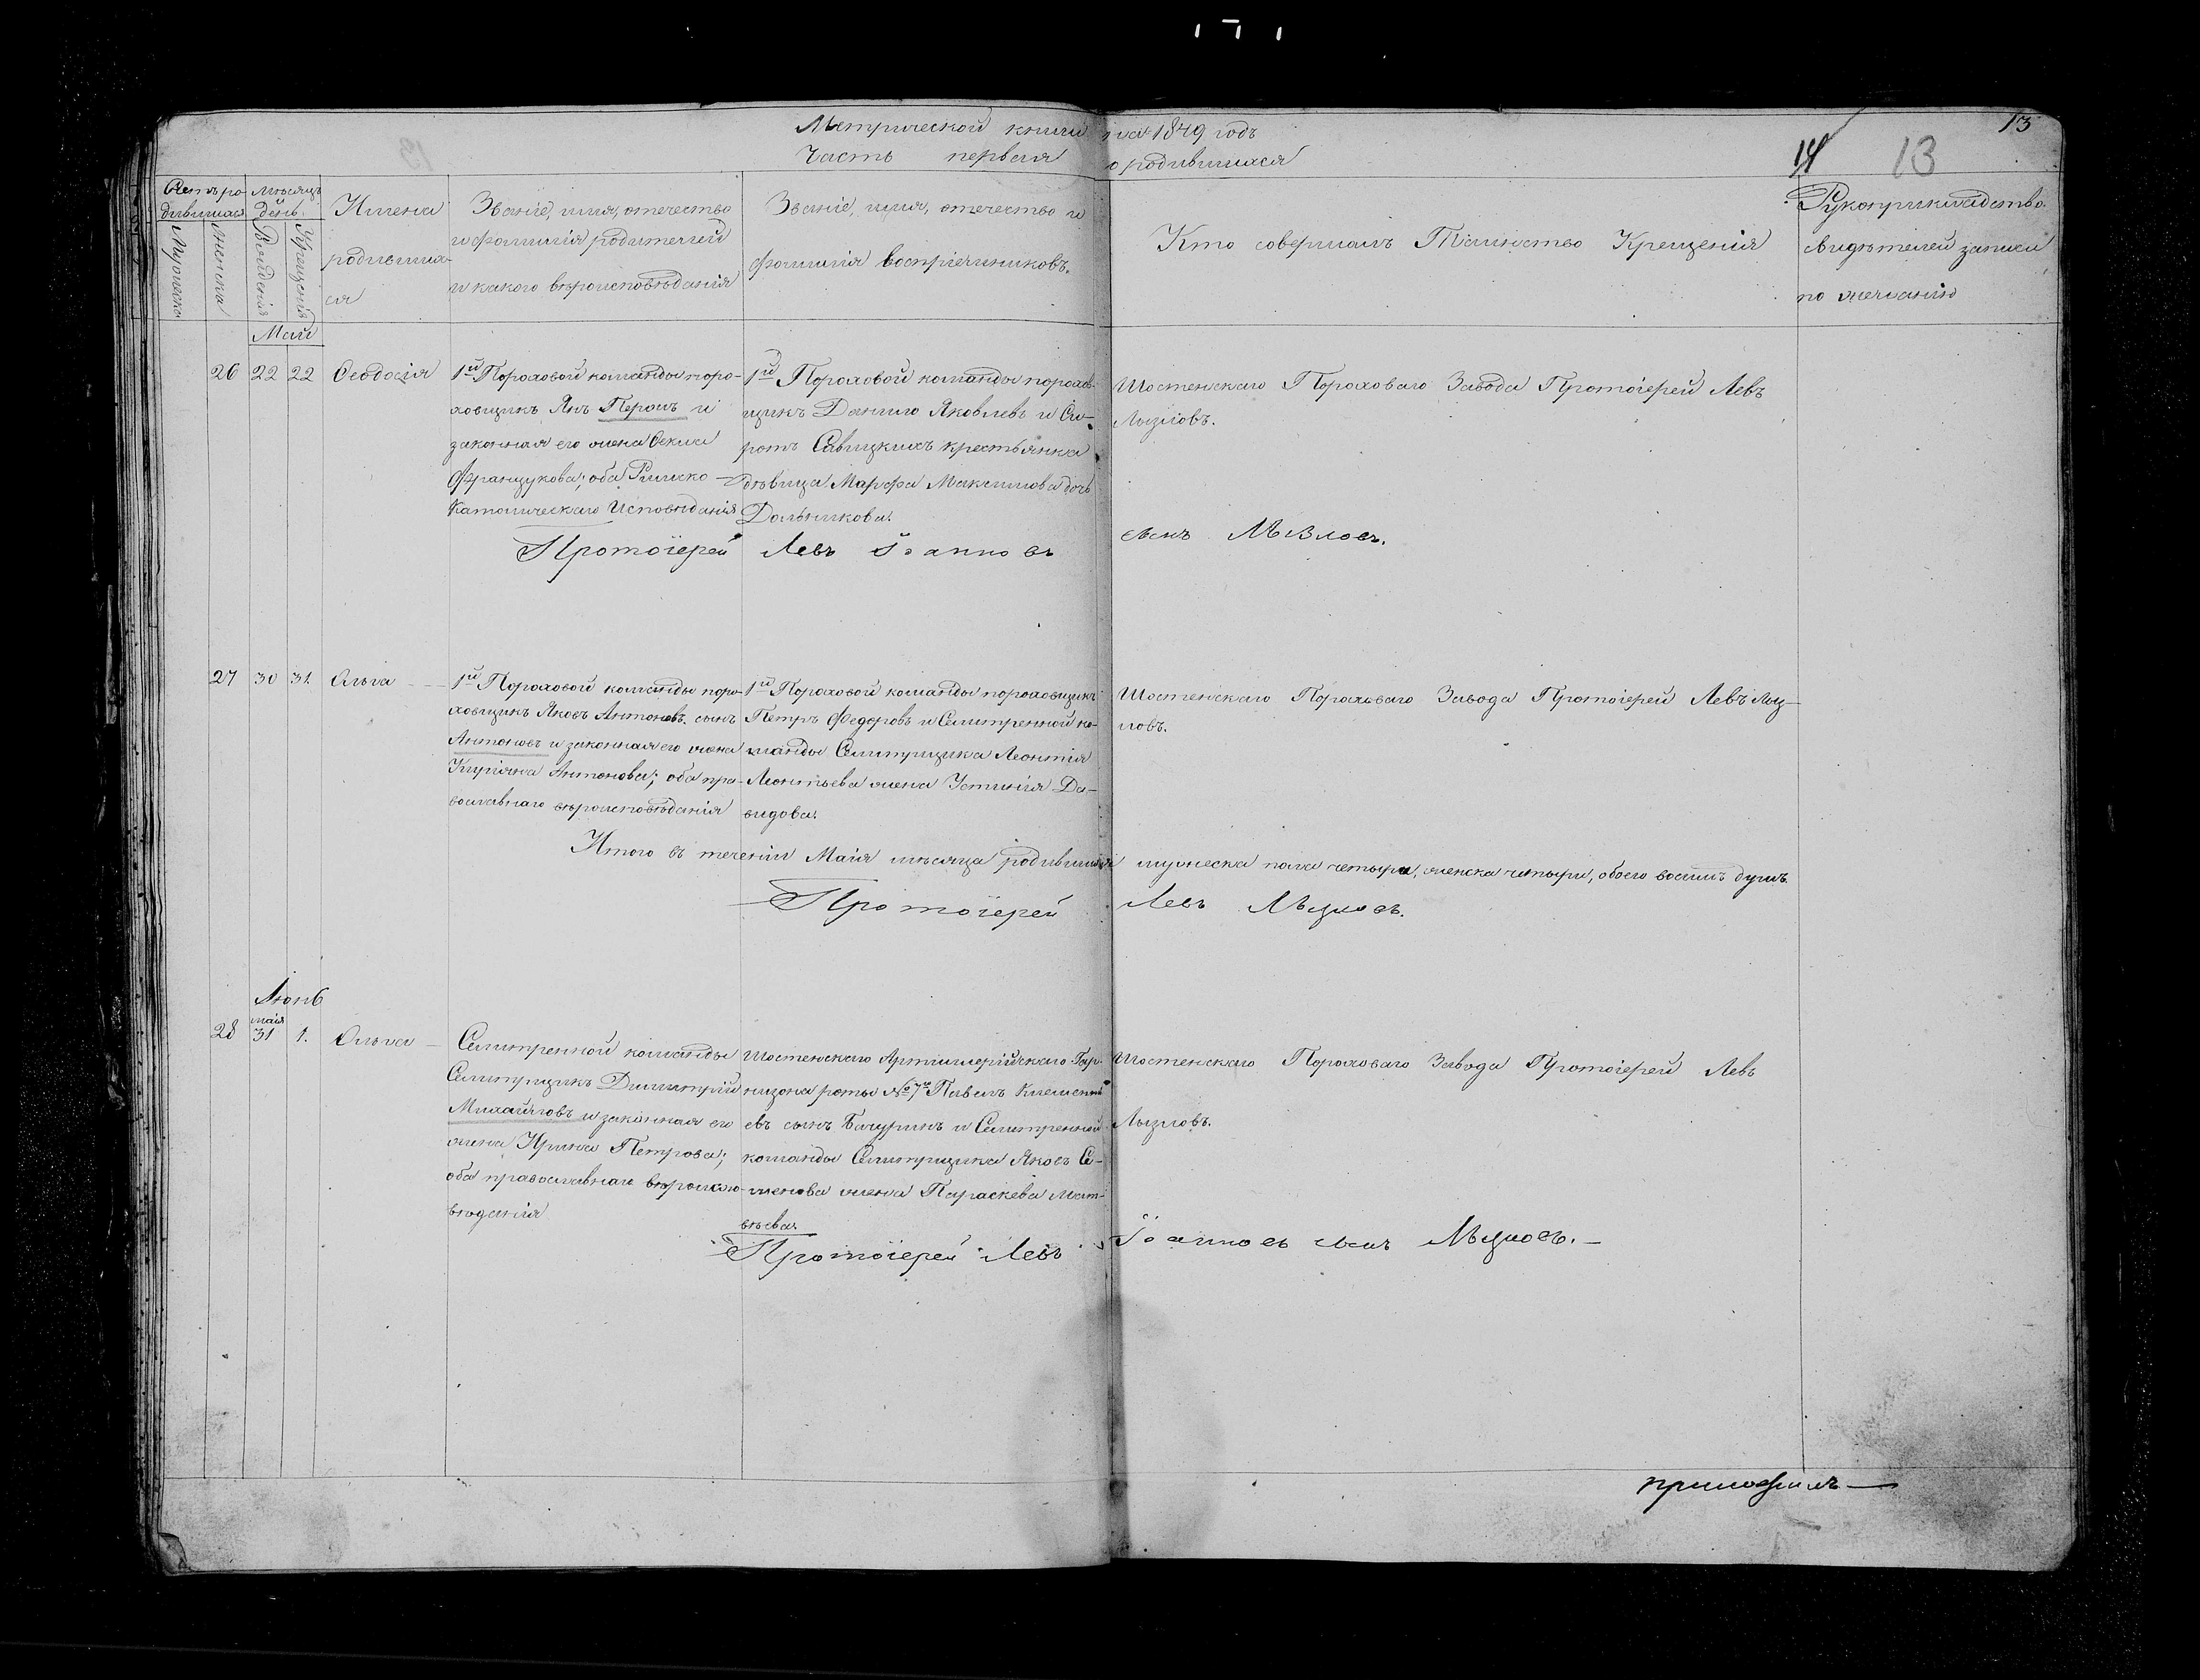 Метрической книги на 1849 годъ
Часть первая о родившихся
13
14
13
Счетъ ро-
дившихся
Мужеска
Женска
Мѣсяцъ
и
день.
Рожденія
Крещенія
Имена
родивших-
ся
Званіе, имя, отечество
и фамилія родителей
и какого вѣроисповѣданія
Званіе, имя, отечество и
фамилія воспріемниковъ.
Кто совершалъ Таинство Крещенія
Рукоприкладство
свидѣтелей записи
по желанію
Май
26 22 22 Феодосія
1й Пороховой команды поро-
ховщикъ Янъ Перошъ и
законная его жена Текла
Французкова; оба Римско-
Католическаго Исповѣданія
1й Пороховой команды порохов-
щикъ Данило Яковлевъ и Си-
ротъ Савицкихъ крестьянка
дѣвица Марфа Максимова дочь
Дольникова.
Шостенскаго Пороховаго Завода Протоіерей Левъ
Лызловъ.
Протоіерей Левъ Іоанновъ сынъ Лызловъ.
27 30 31. Ольга
1й Пороховой команды поро-
ховщикъ Яковъ Антоновъ сынъ
Антоновъ и законная его жена
Антонова; оба пра-
вославнаго вѣроисповѣданія
1й Пороховой команды пороховщикъ
Петръ Федоровъ и Селитренной ко-
манды Селитрщика Леонтія
Леонтьева жена Устинія Да-
видова.
Шостенскаго Пороховаго Завода Протоіерей Левъ Лыз-
ловъ.
Итого въ теченіи Маія мѣсяца родившихся мужеска пола четыре, женска четыри, обоего восемь душъ.
Протоіерей Левъ Лызловъ.
Іюнь
маія
28 31 1. Ольга
Селитренной команды
Селитрщикъ Димитрій
Михайловъ и законная его
жена Ирина Петрова;
оба православнаго вѣроиспо-
вѣданія
Шостенскаго Артиллерійскаго Гар-
низона роты №7й Павелъ Клементі-
евъ сынъ Бачуринъ и Селитренной
команды Селитрщика Яковъ Се-
менова жена Параскева Мат-
вѣева.
Шостенскаго Пороховаго Завода Протоіерей Левъ
Лызловъ.
Протоіерей Левъ Іоанновъ сынъ Лызловъ.
приложилъ